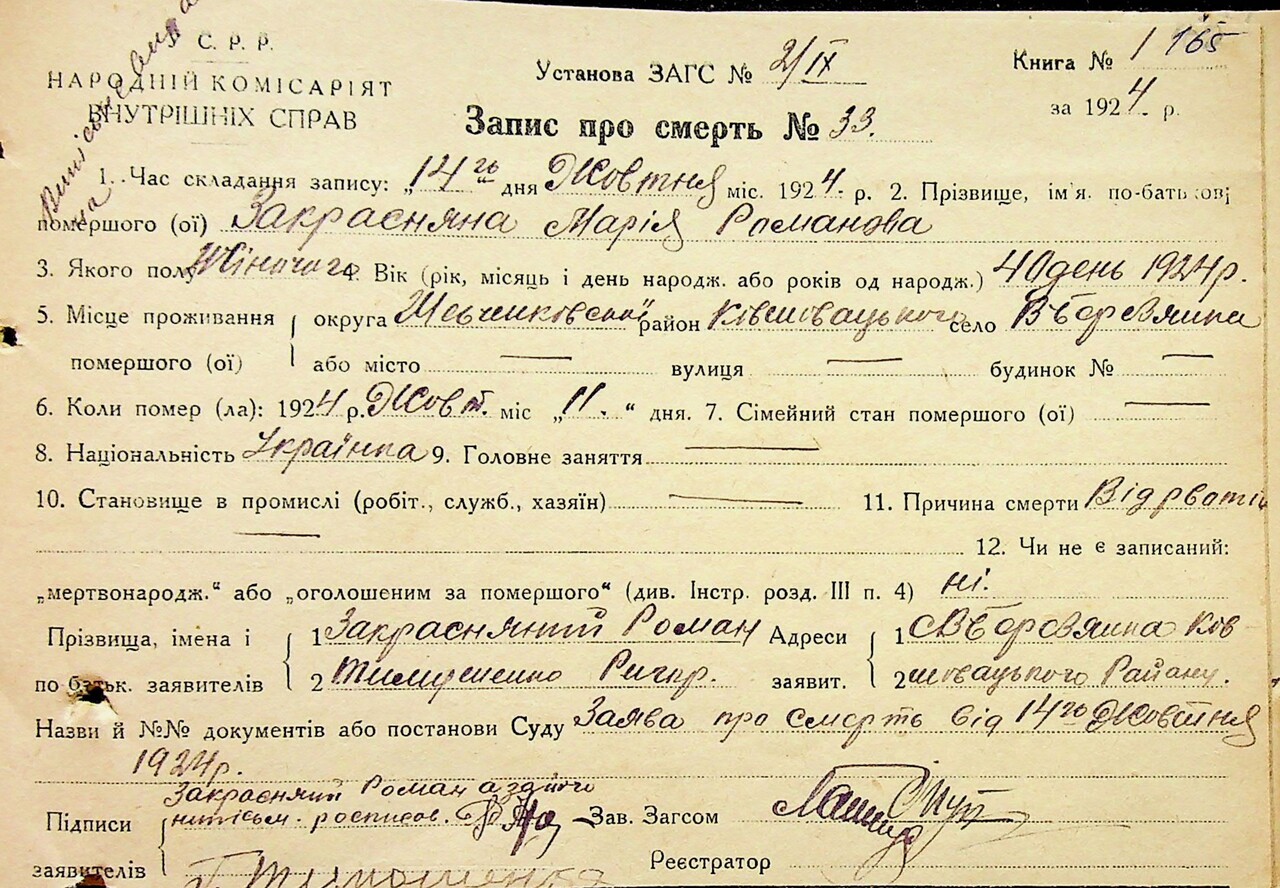 С. Р. Р.
НАРОДНІЙ КОМІСАРІЯТ
ВНУТРІШНІХ СПРАВ
Установа ЗАГС № 2/IX
Книга № 1 165
за 1924 р.
Запис про смерть № 33.
1. Час складання запису: „14го" дня Жовтня міс. 1924 р. 2. Прізвище, ім'я. по-батькові
помершого (ої) Закрасняна Марія Романова
3. Якого полу Жіночого 4. Вік (рік, місяць і день народж. або років од народж.) 40 день 1924 р.
5. Місце проживання округа район село
помершого (ої) або місто — вулиця — будинок № —
6. Коли помер (ла): 1924 р. Жовт. міс „11." дня. 7. Сімейний стан помершого (ої) —
8. Національність Українка 9. Головне заняття —
10. Становище в промислі (робіт., служб., хазяїн) — 11. Причина смерти Від
— 12. Чи не є записаний:
„мертвонародж." або „оголошеним за помершого" (див. Інстр. розд. III п. 4) ні.
Прізвища, імена і 1 Закрасняний Роман Адреси 1
по батьк. заявителів 2 заявит. 2 Району.
Назви й №№ документів або постанови Суду Заява про смерть від 14го Жовтня
1924 р.
Закрасняний Роман а за його
Підписи росписов. Зав. Загсом
заявителів Реєстратор